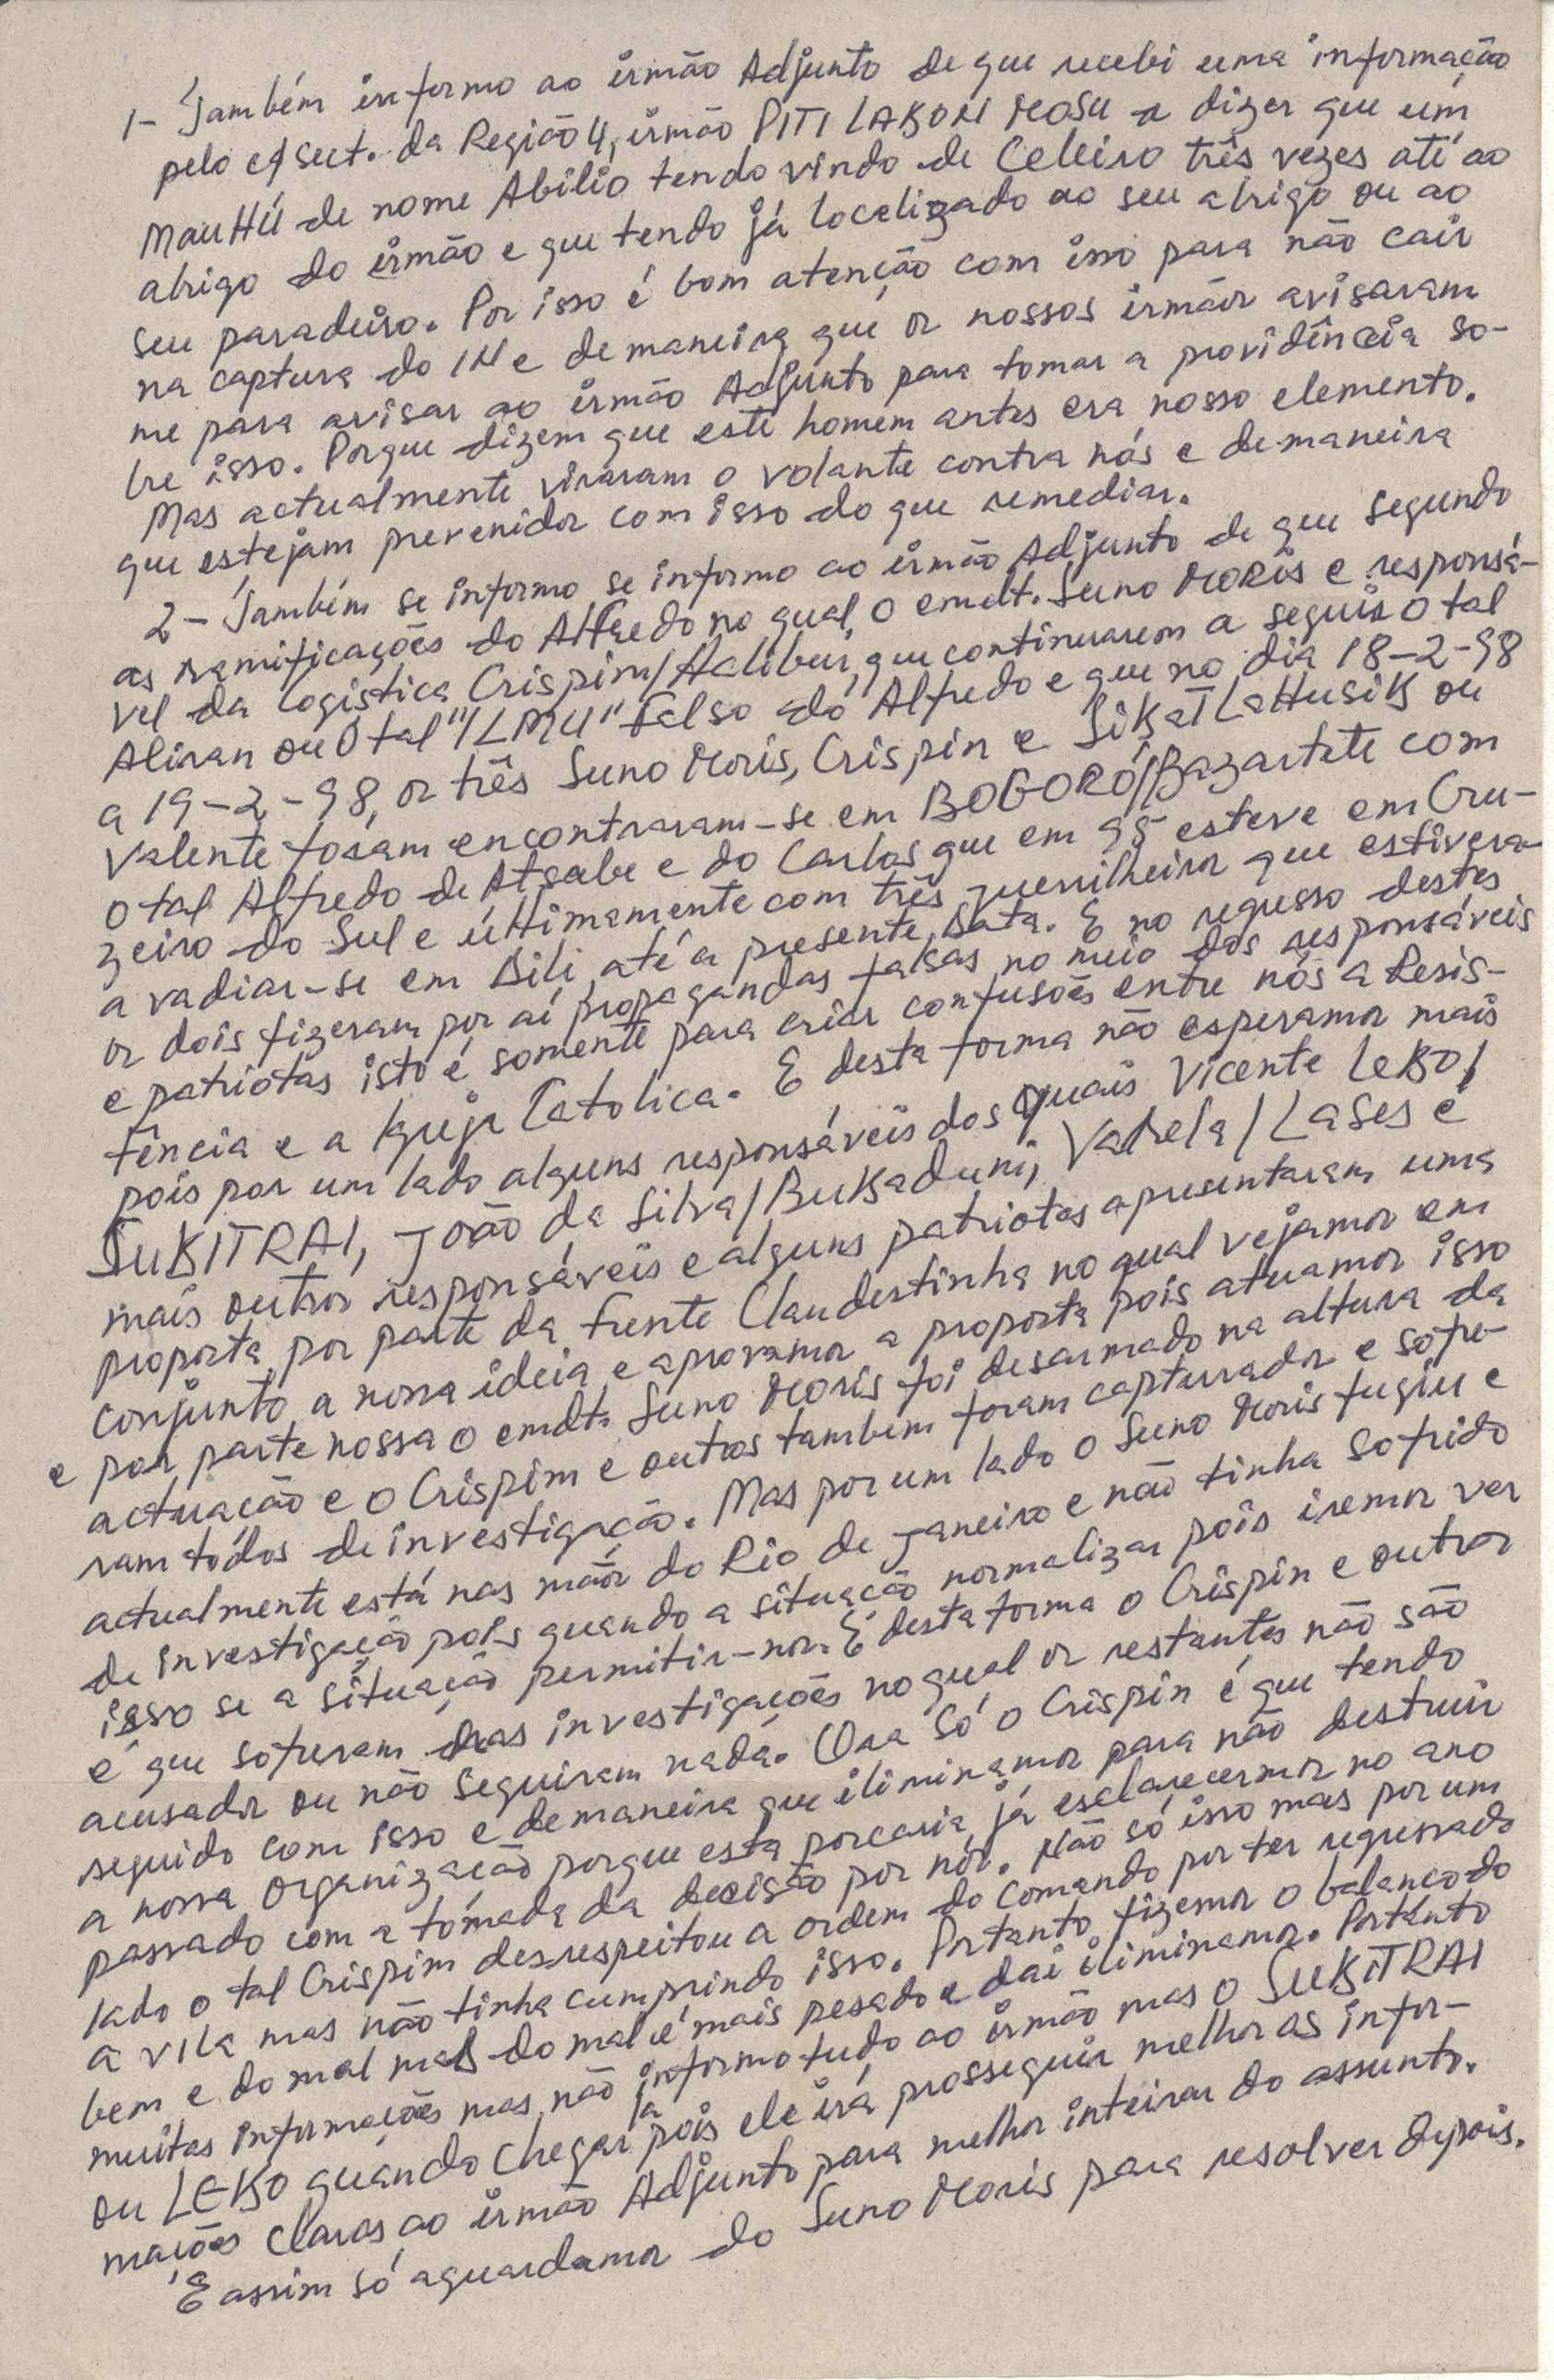 1- Também informo ao irmão Adjunto de que recebi uma informação
pelo c/sect. da Região 4, irmão PITI LAKON MOSU a dizer que um
MAUHÚ de nome Abílio tendo vindo de Celeiro três vezes até ao
abrigo do irmão e que tendo já localizado ao seu abrigo ou ao
seu paradeiro. Por isso é bom atenção com isso para não cair
na captura do IN e de maneira que os nossos irmãos avisaram
me para avisar ao irmão Adjunto para tomar a providência so-
bre isso. Porque dizem que este homem antes era nosso elemento.
Mas actualmente viraram o volante contra nós e de maneira
que estejam prevenidos com isso do que remediar.
2- Também se informo se informo ao irmão Adjunto de que segundo
as ramificações do Alfredo no qual, o cmdt. Suno MORIS e responsá-
vel da logística Crispim/Halibur, que continuarem a seguir o tal
Aliran ou o tal "ILMU" falso do Alfredo e que no dia 18-2-98
a 19-2-98, os três Suno Moris, Crispin e SiKaT LaHusiK ou
Valente foram encontraram-se em BOGORÓ/Bazartete com
o tal Alfredo de Atsabe e do Carlos que em 95 esteve em Cru-
zeiro do Sul e últimamente com três guerrilheiros que estivera
a vadiar-se em Dili até a presente data. E no regresso destes
os dois fizeram por aí propagandas falsas no meio dos responsáveis
e patriotas isto é somente para criar confusões entre nós a Resis-
tência e a Igreja Catolica. E desta forma não esperamos mais
pois por um lado alguns responsáveis dos quais Vicente LeKO/
SuKITRAI, João da Silva/BuKaduni, Vatrela/Lases e
mais outros responsáveis e alguns patriotas apresentaram uma
proposta por parte da Frente Clandestinha no qual vejamos em
conjunto a nossa ideia e aprovamos a proposta pois atuamos isso
e por parte nossa o cmdt. Suno Moris foi desarmado na altura da
actuação e o Crispim e outros também foram capturados e sofre-
ram todos de investigação. Mas por um lado o Suno Moris fugiu e
actualmente está nas mãos do Rio de Janeiro e não tinha sofrido
de investigação pois quando a situação normalizar pois iremos ver
isso se a situação permitir-nos. E desta forma o Crispin e outros
é que sofreram das investigações no qual os restantes não são
acusados ou não seguiram nada. Ora só o Crispin é que tendo
seguido com isso e de maneira que iliminamos para não destruir
a nossa organização porque esta porcaria já esclarecermos no ano
passado com a tomada da decisão por nós. Não só isso mas por um
lado o tal Crispim desrespeitou a ordem do comando por ter regressado
a vila mas não tinha cumprindo isso. Portanto fizemos o balanco do
bem e do mal mas do mal é mais pesado e daí iliminamos. Portanto
muitas informações mas não informo tudo ao irmão mas o SuKITRAI
ou LEKO quando chegar já pois ele irá prosseguir melhor as infor-
mações claras ao irmão Adjunto para melhor inteirar do assunto.
E assim só aguardamos do Suno Moris para resolver depois.